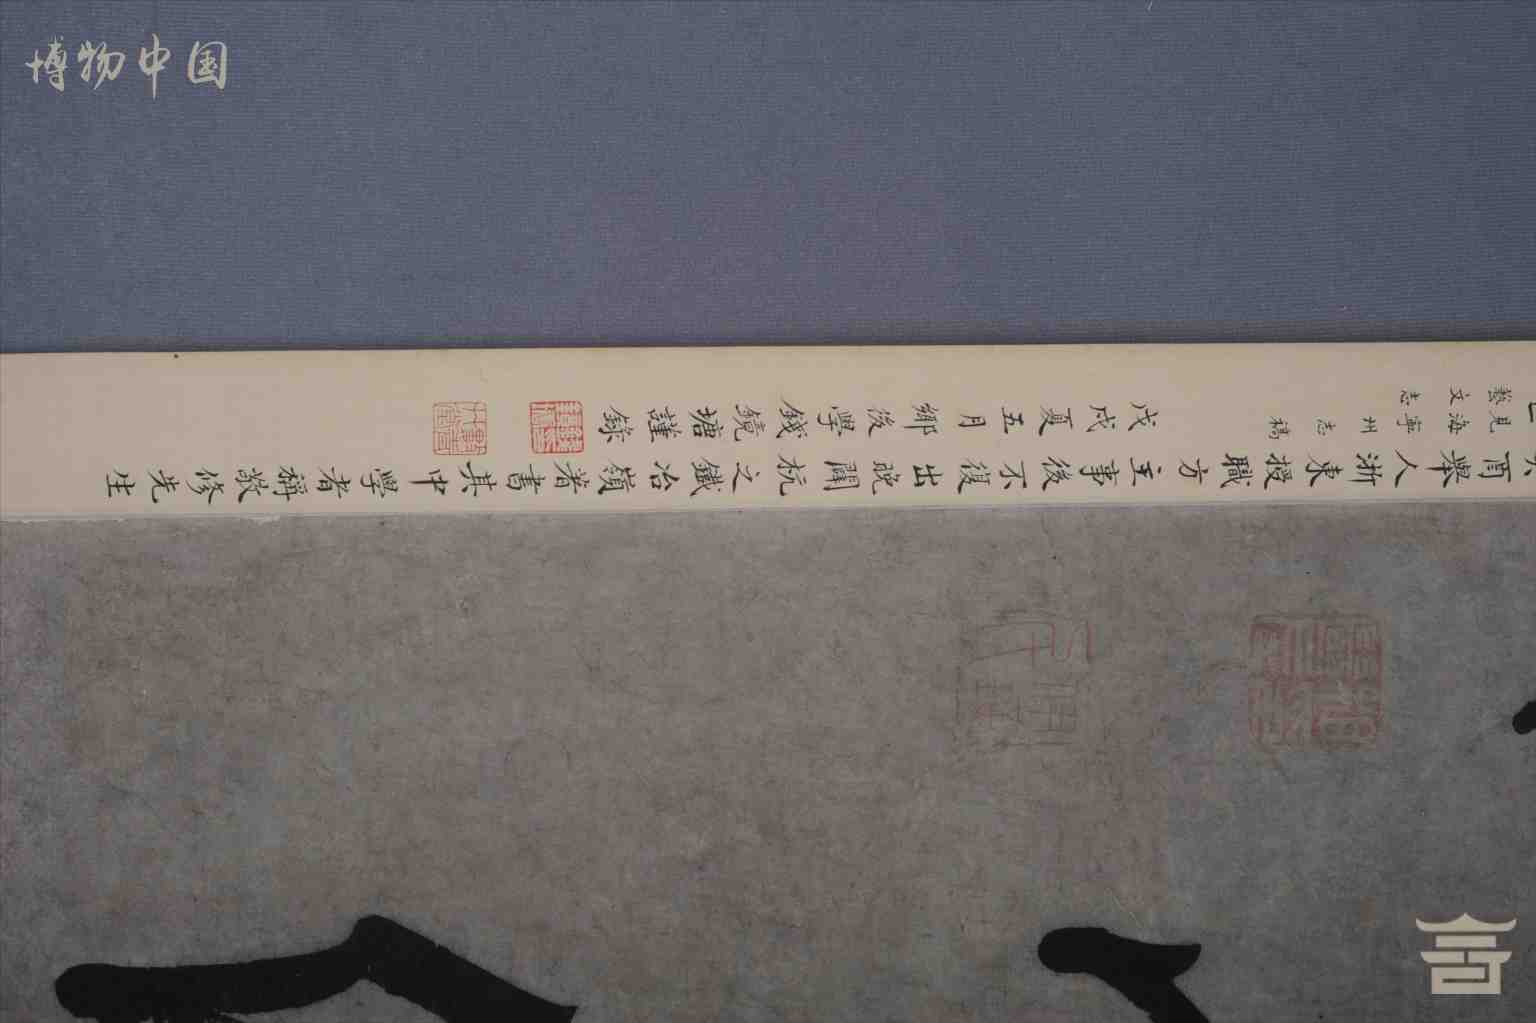 博物中国
酉舉人浙東授職方主事後不復出晚闢杭之鐵冶嶺著書其中學者稱敬修先生
見海寧州志稿
藝文志
戊戌夏五月鄉後學錢鏡塘謹錄